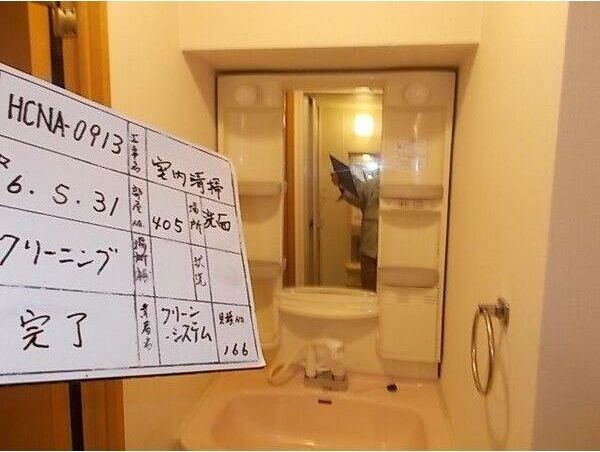 HCNA-0913 工事名 室内清掃
6.5.31 部屋No. 405 場所 洗面
クリーニング 状況
完了 業者名 クリーン・システム 見積No. 166